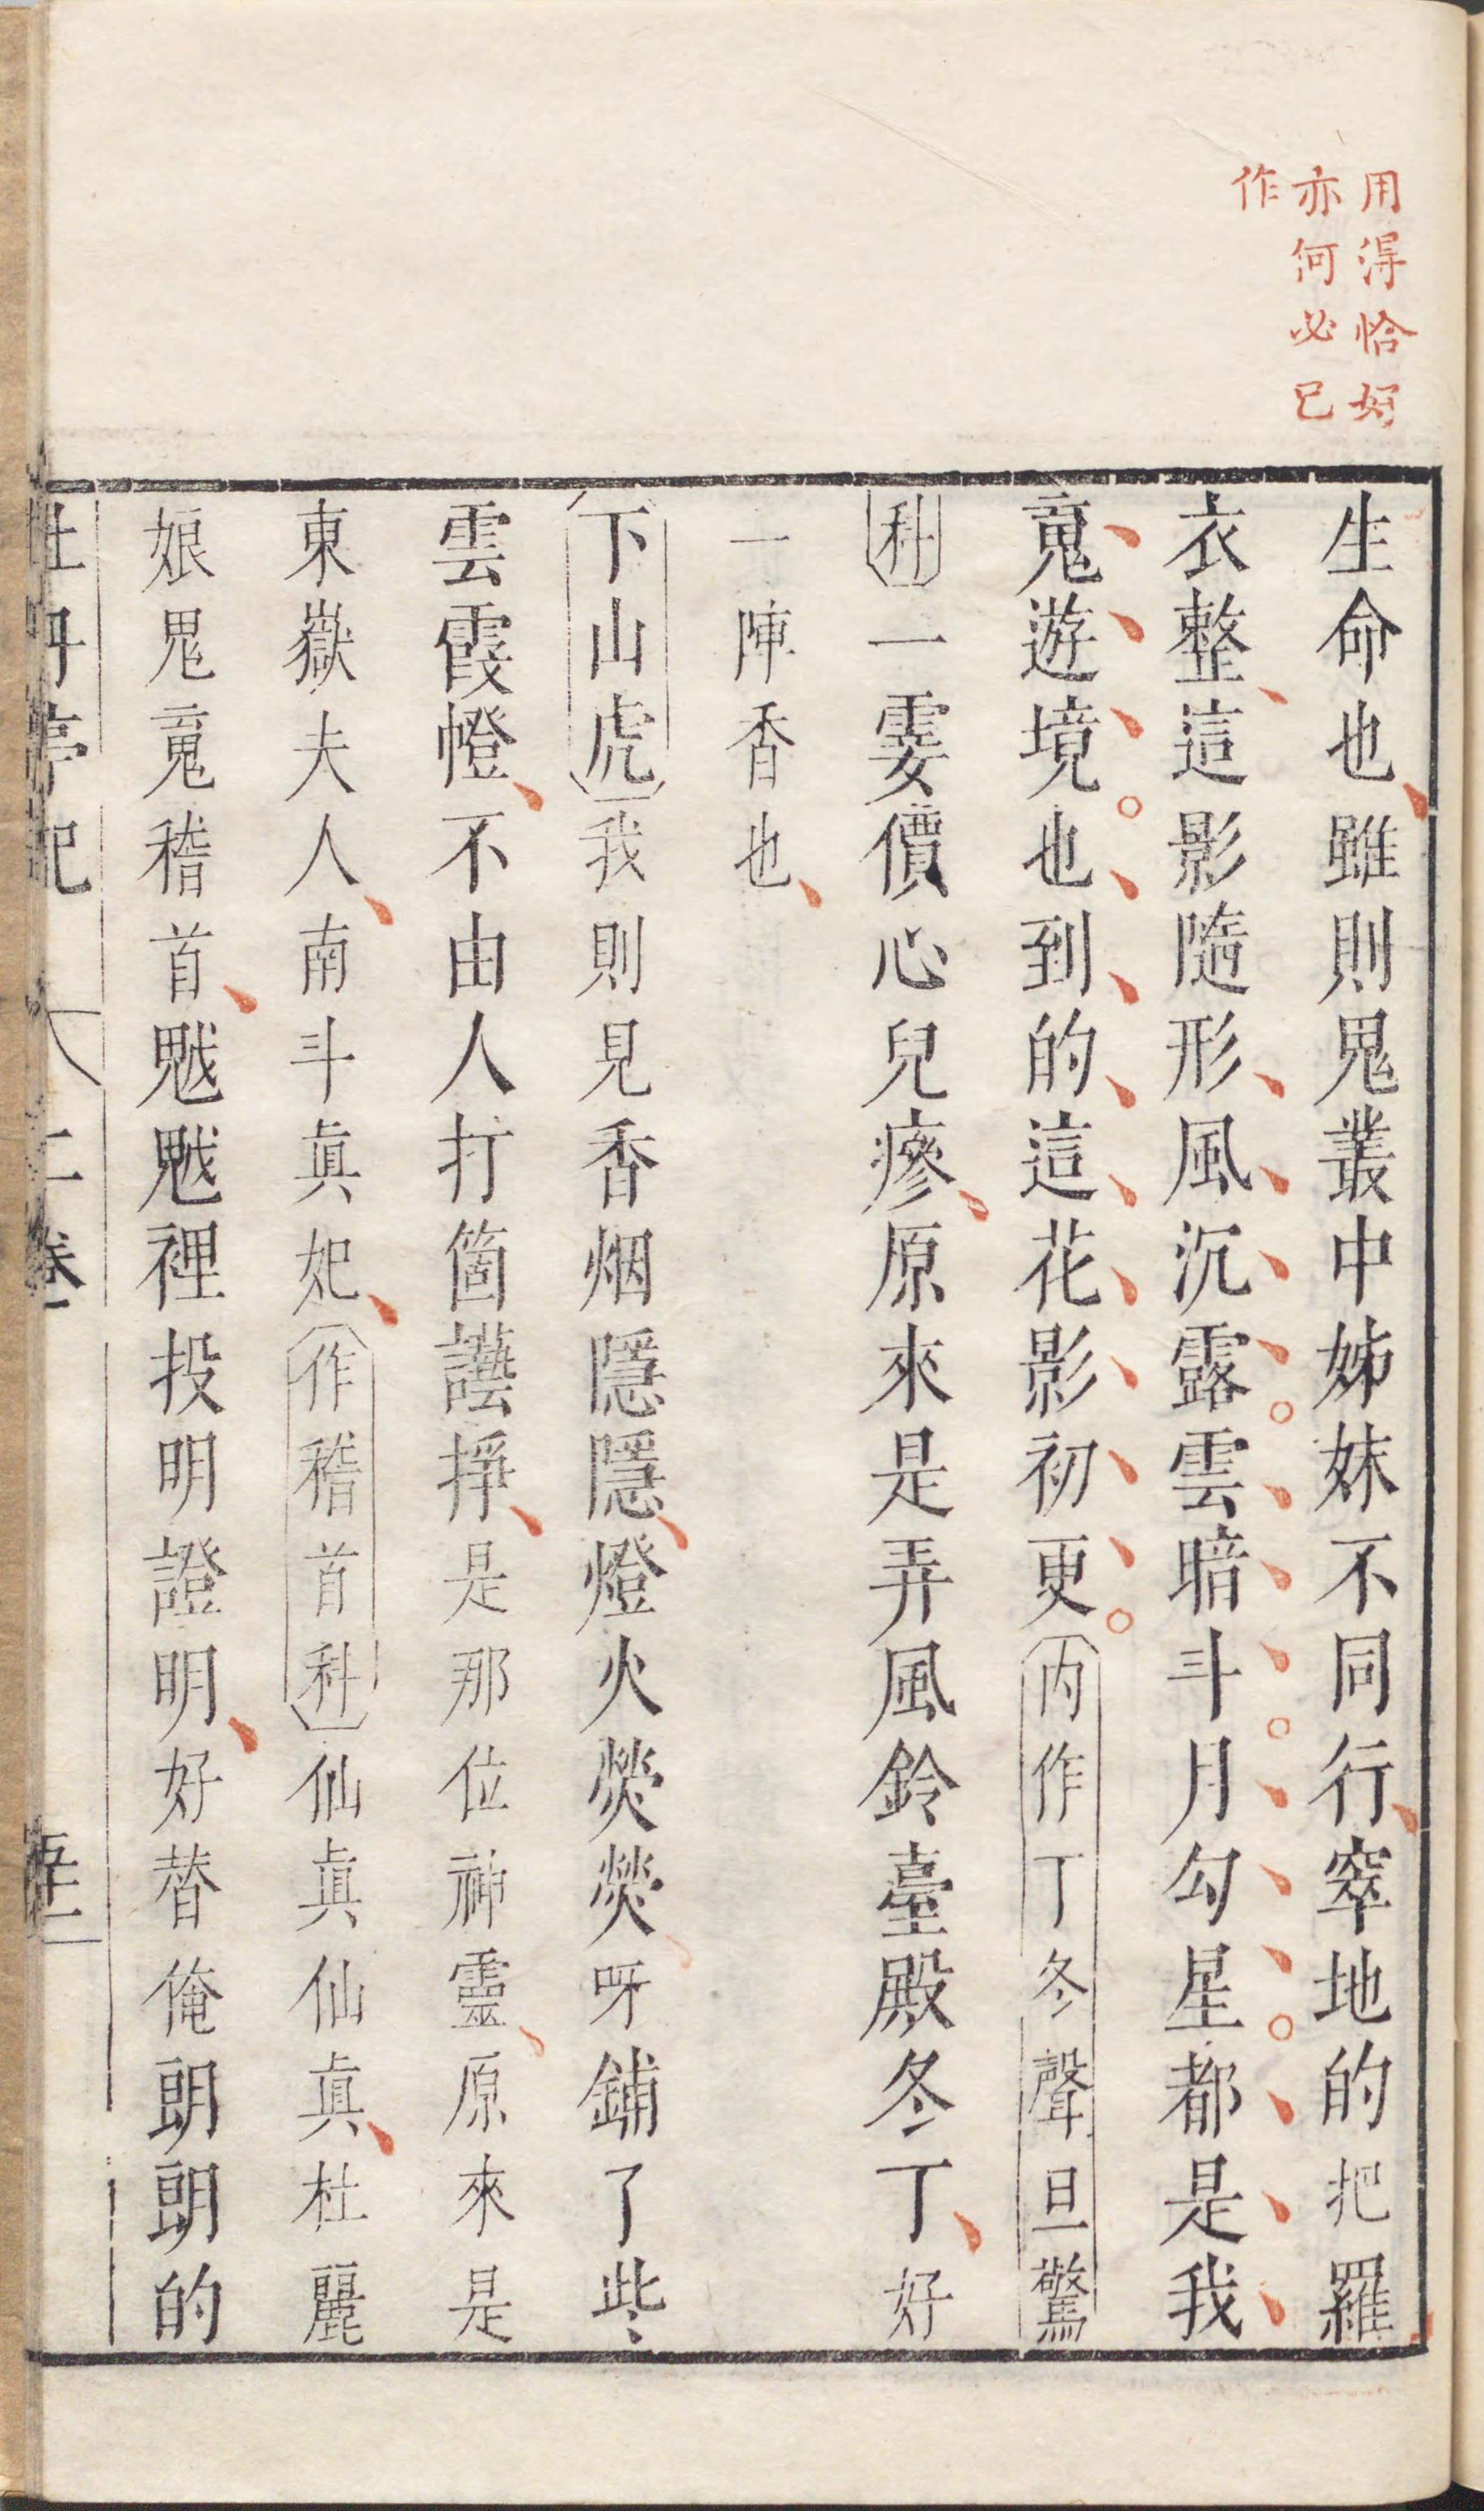 用得恰好
亦何必已
作
生命也雖則鬼叢中姊妹不同行窣地的把羅
衣整這影隨形風沉露雲暗斗月勾星都是我
䰟遊境也到的這花影初更內作丁冬聲旦驚
科一霎價心兒瘮原來是弄風鈴臺殿冬丁好
一陣香也
下山虎我則見香烟隱隱燈火熒熒呀鋪了些
雲霞㡧不由人打箇讔挣是那位神靈原來是
東嶽夫人南斗眞妃作稽首科仙眞仙眞杜麗
娘鬼䰟稽首魆魆裡投明證明好替俺朗朗的
牡丹亭記 二卷